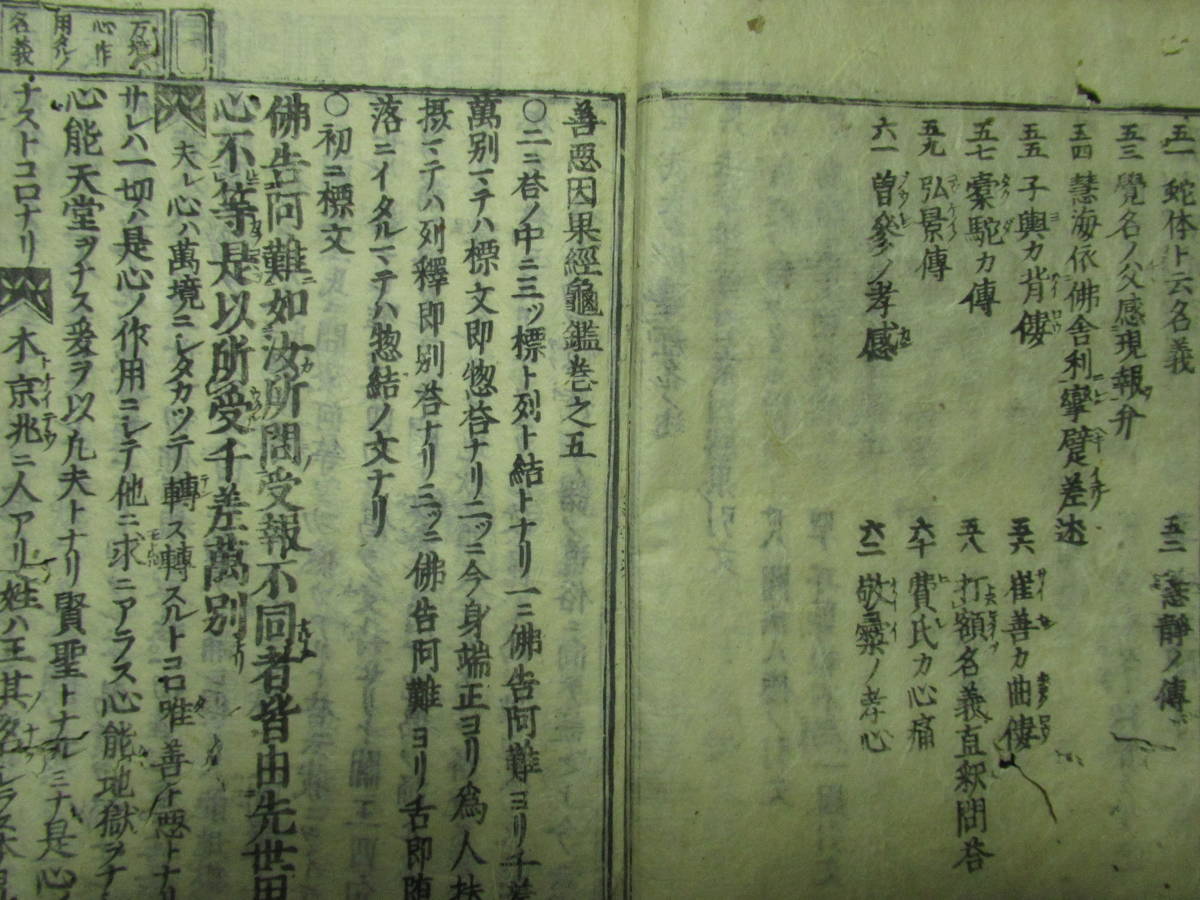 五一 蛇体ト云名義
五二 慧靜ノ傳
五三 覺名ノ父感現報弁
五四 慧海依佛舍利攣躄差述
五五 子輿カ背僂
五六 崔善カ曲僂
五七 槖駝カ傳
五八 打額名義直釈問答
五九 弘景傳
六十 費氏カ心痛
六一 曽參ノ孝感
六二 敬㒒ノ孝心
善惡因果經龜鑑巻之五
○二ニ荅ノ中ニ三ッ標ト列ト結トナリ一ニ佛告阿難ヨリ千差
萬別マテハ標文即惣荅ナリ二ッニ今身端正ヨリ為人扶
摂マテハ列釋即別荅ナリ三ッニ佛告阿難ヨリ舌即堕
落ニイタルマテハ惣結ノ文ナリ
○初ニ標文
佛告阿難如汝所問受報不同者皆由先世用
心不等是以所受千差萬別
夫レ心ハ萬境ニシタカツテ轉ス轉スルトコロ唯善ト悪トナリ
サレハ一切ハ是心ノ作用ニシテ他ニ求ニアラス心能地獄ヲナ
心能天堂ヲナス爰ヲ以凡夫トナリ賢聖トナル三ナ是心ノ
ナストコロナリ
木京兆ニ人アリ姓ハ王其名シラス本
万境ハ
心作
用タル
名義